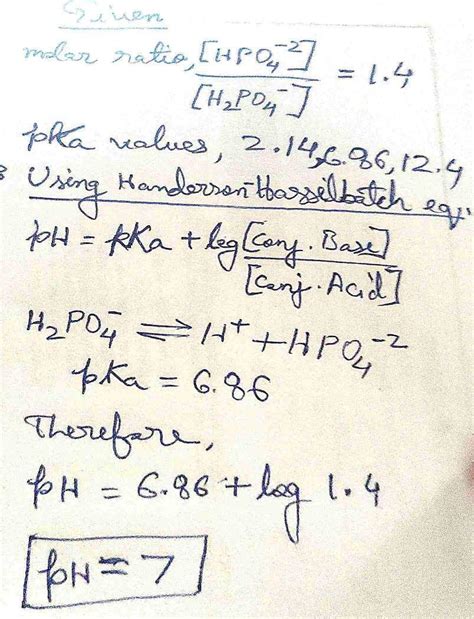 Given
molar ratio, [HPO₄⁻²] / [H₂PO₄⁻] = 1.4,
pKa values, 2.14, 6.86, 12.4
Using Handerson Hassilbatch eq:
pH = pKa + log [Conj. Base] / [Conj. Acid]
H₂PO₄⁻ ⇌ H⁺ + HPO₄⁻²
pKa = 6.86
Therefore,
pH = 6.86 + log 1.4
pH = 7